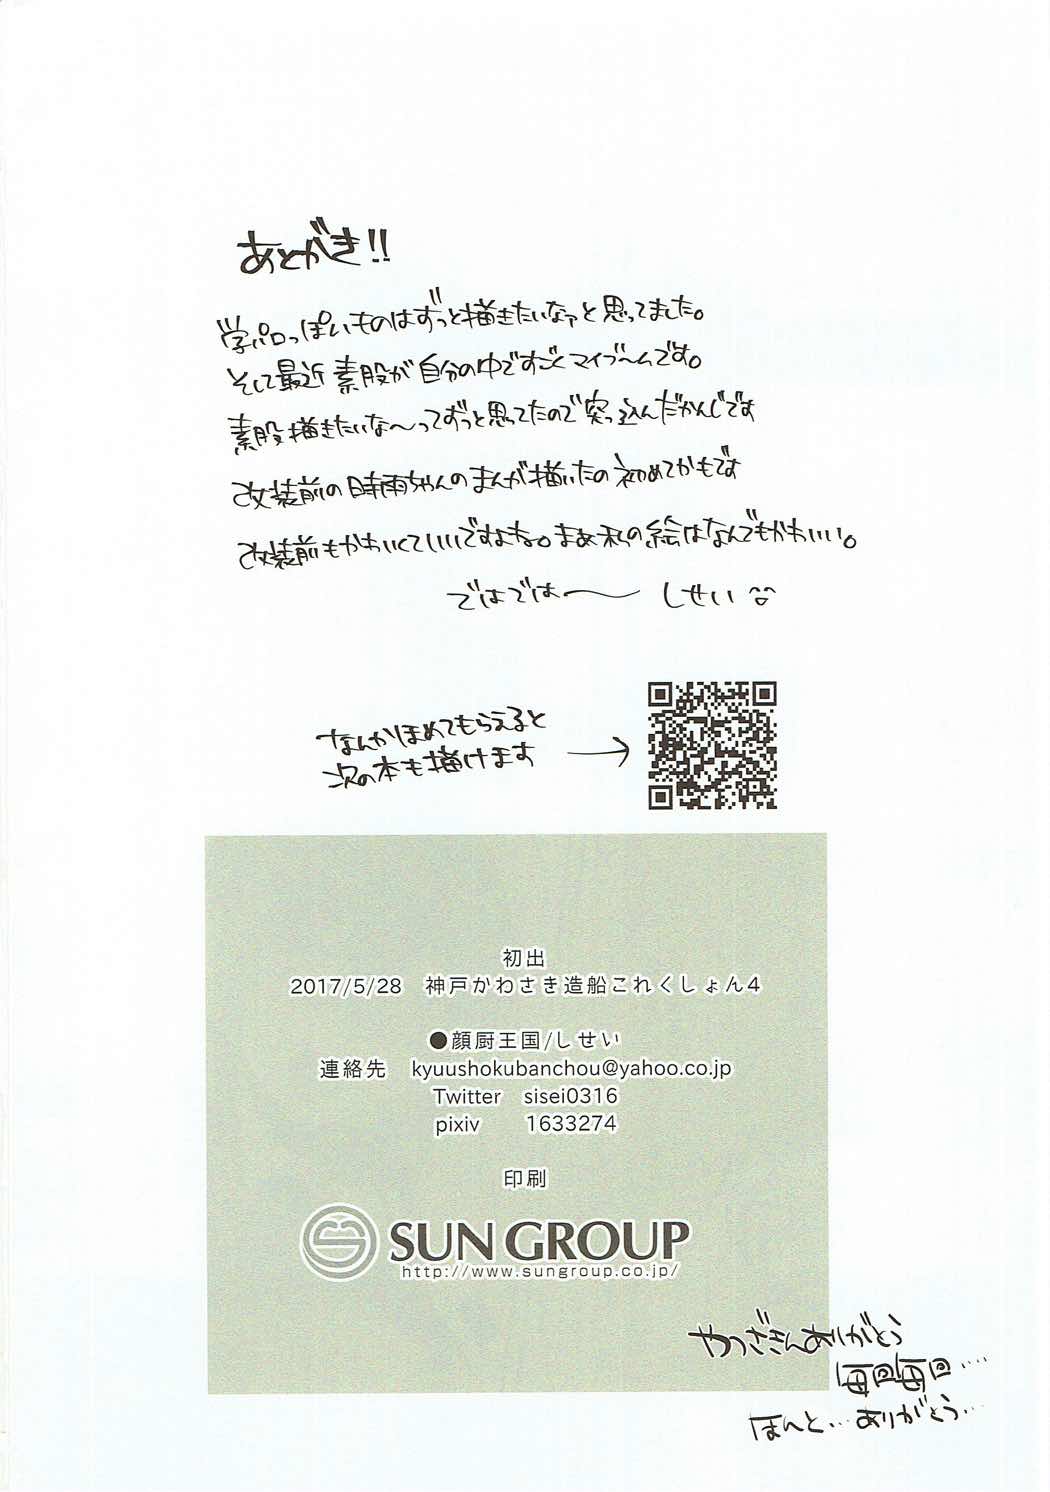 あとがき!!
学パロっぽいものはずっと描きたいなァと思ってました。
そして最近素股が自分の中ですごくマイブームです。
素股描きたいな〜ってずっと思ってたので突っ込んだかんじです
改装前の時雨ちゃんのまんが描いたの初めてかもです
改装前もかわいくていいですよね。まあ私の絵はなんでもかわいい。
ではでは〜 しせい
なんかほめてもらえると
次の本も描けます
初出
2017/5/28 神戸かわさき造船これくしょん4
●顔厨王国/しせい
連絡先 kyuushokubanchou@yahoo.co.jp
Twitter sisei0316
pixiv 1633274
印刷
SUN GROUP
http://www.sungroup.co.jp/
やつざきんありがとう
毎回毎回……
ほんと…ありがとう…